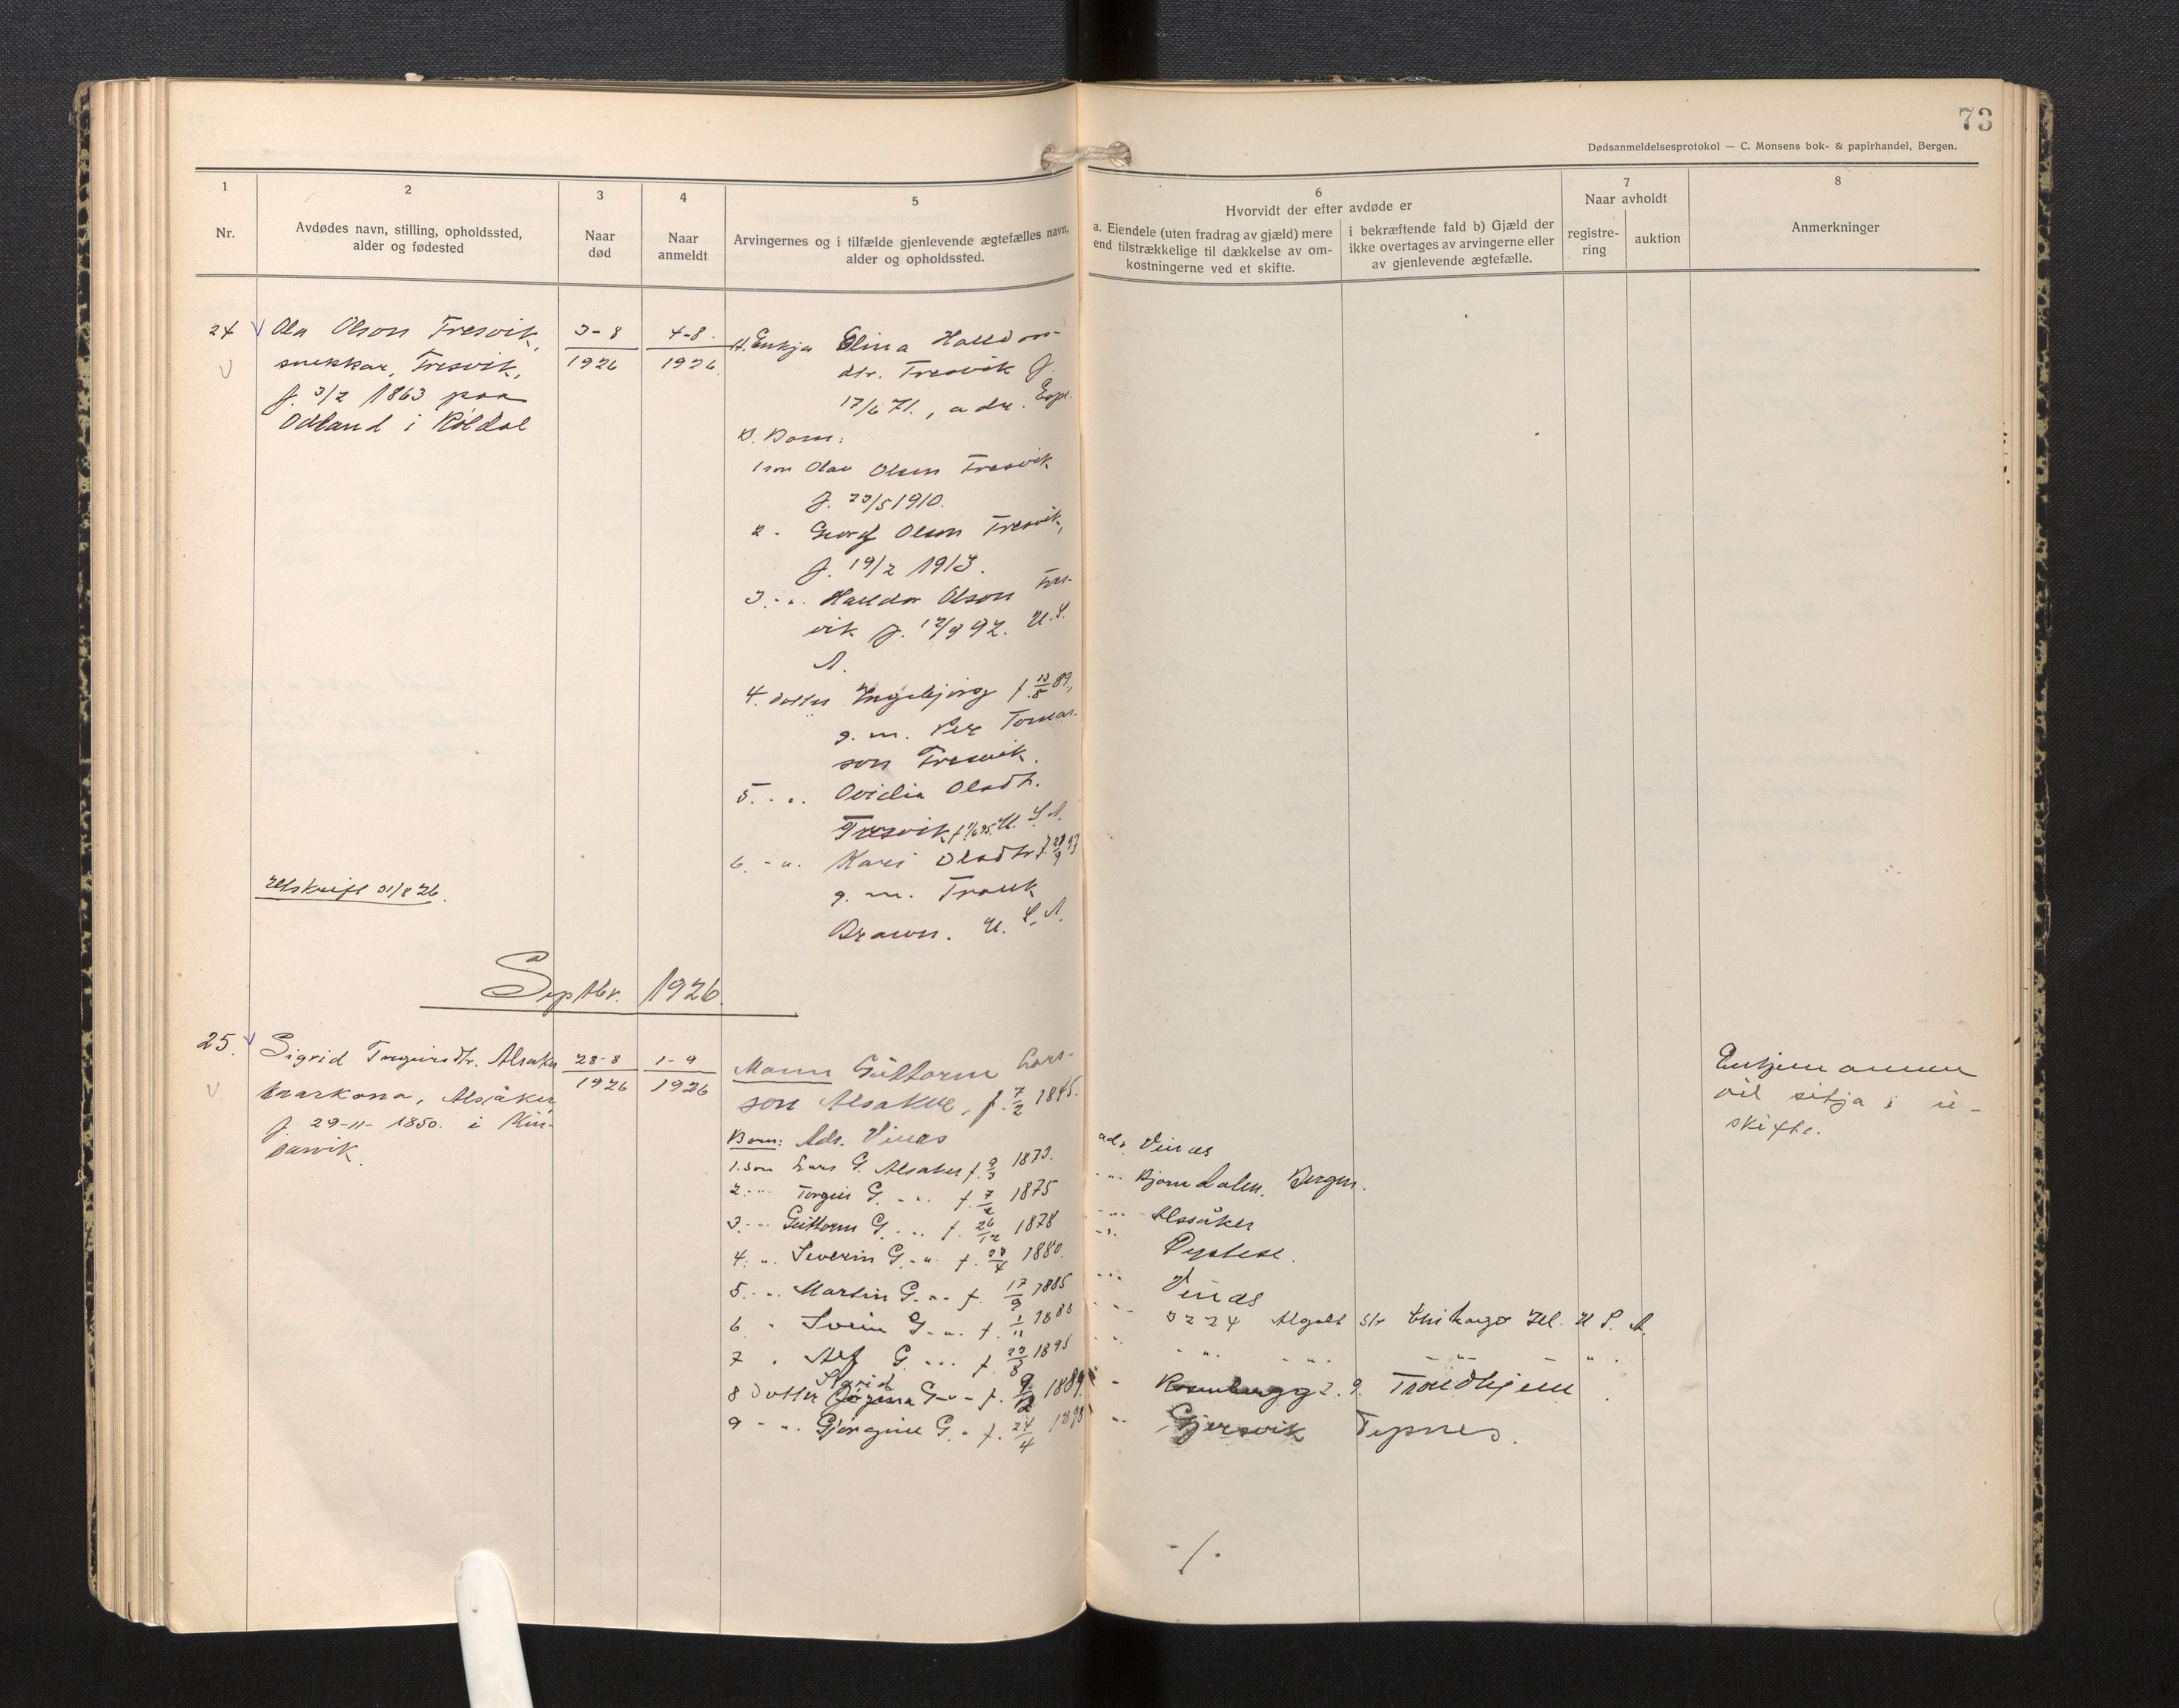 73
Dødsanmeldelsesprotokol — C. Monsens bok- & papirhandel, Bergen.
1
Nr.
2
Avdødes navn, stilling, opholdssted,
alder og fødested
3
Naar
død
4
Naar
anmeldt
5
Arvingernes og i tilfælde gjenlevende ægtefælles navn,
alder og opholdssted.
6
Hvorvidt der efter avdøde er
a. Eiendele (uten fradrag av gjæld) mere
end tilstrækkelige til dækkelse av om-
kostningerne ved et skifte.
i bekræftende fald b) Gjæld der
ikke overtages av arvingerne eller
av gjenlevende ægtefælle.
7
Naar avholdt
registre-
ring
auktion
8
Anmerkninger
24
Ola Olson Tresvik,
snekkar, Tresvik,
f. 3/2 1863 paa
Odland i Röldal
3-8
1926
4-8.
1926.
A. Enkja Elina Halldors-
dtr. Tresvik f.
17/6 71., adr. Espe.
B. Born:
1 son Olav Olson Tresvik
f. 23/5 1910.
2. Georg Olson Tresvik,
f. 19/2 1913.
3. " Halldor Olson Tres-
vik f. 12/9 92. U.S.
A.
4. dotter Ingebjörg f. 10/8 89,
g. m. Per Tomas-
son Tresvik.
5. " Ovidia Olsdtr.
Tresvik U. S. A.
6. " Kari Olsdtr f. 28/9 93
g. m. Frank
Brawn. U. S. A.
Utskrift 31/8 26.
Septbr. 1926.
25.
Sigrid Torgeirsdtr. Alsaker
kaarkona, Alsåker,
f. 29-11-1850. i Kin-
sarvik.
28-8
1926
1-9
1926
Mann Guttorm Lars-
son Alsaker, f. 7/2 1845.
Born: Adr. Vines
1. son Lars G. Alsaker f. 9/3 1873.
adr. Vinæs
2. " Torgeir G. " f. 7/2 1875
" Bjørndalen, Bergen.
3. " Guttorm G. " f. 26/12 1878
" Alsåker
4. " Severin G. " f. 23/4 1880.
" Øystese.
5. " Martin G. " f. 17/9 1885
" Vinæs
6 " Svein G. " f. 1/11 1888
" 3224 str Chikago Ill. U S. A.
7 " Alf G. " f. 23/8 1895
" " " " "
8 Dotter Sigrid G. " f. 1889.
" Rosenborgg 2. 9. Trondhjem.
9 " Gjörgine G. " f. 24/4 1898
" Gjersvik Tysnes.
Enkjemannen
vil sitja i u-
skifte.
-/.